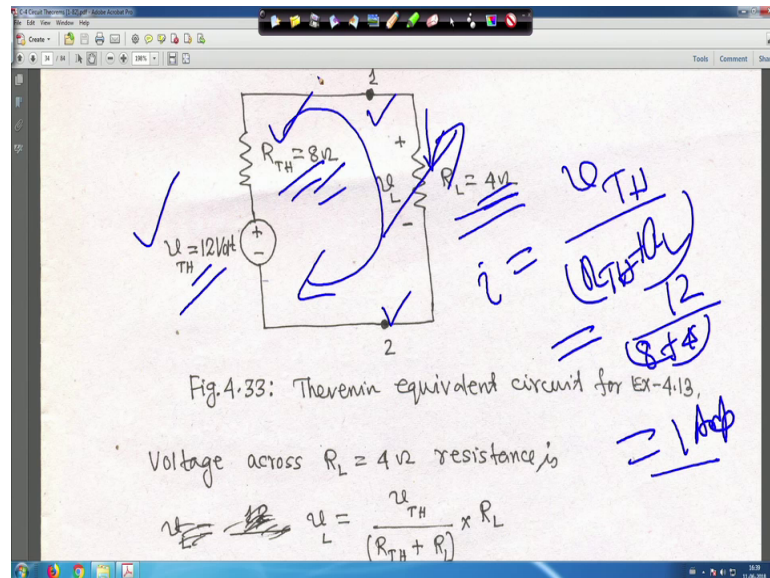 C-4 Circuit Theorems [1-82].pdf - Adobe Acrobat Pro
File Edit View Window Help
Create
34 / 84 198% Tools Comment
1
R_TH = 8Ω
+
υ_L
-
R_L = 4Ω
+
-
υ_TH = 12 Volt
2
i = υ_TH / (R_TH + R_L)
= 12 / (8+4)
= 1 Amp
Fig. 4.33: Thevenin equivalent circuit for EX-4.13.
Voltage across R_L = 4Ω resistance is
υ_L = υ_TH / (R_TH + R_L) × R_L
16:39
11-06-2018